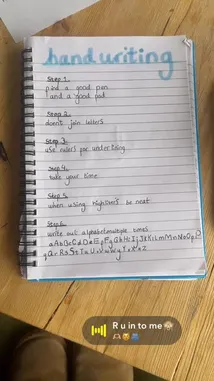 handwriting
Step 1.
find a good pen
and a good pad
Step 2.
don't join letters
Step 3.
use rulers for underlining
Step 4.
take your time
Step 5.
when using highlighters be neat
Step 6.
write out alphabet multiple times
R u in to me